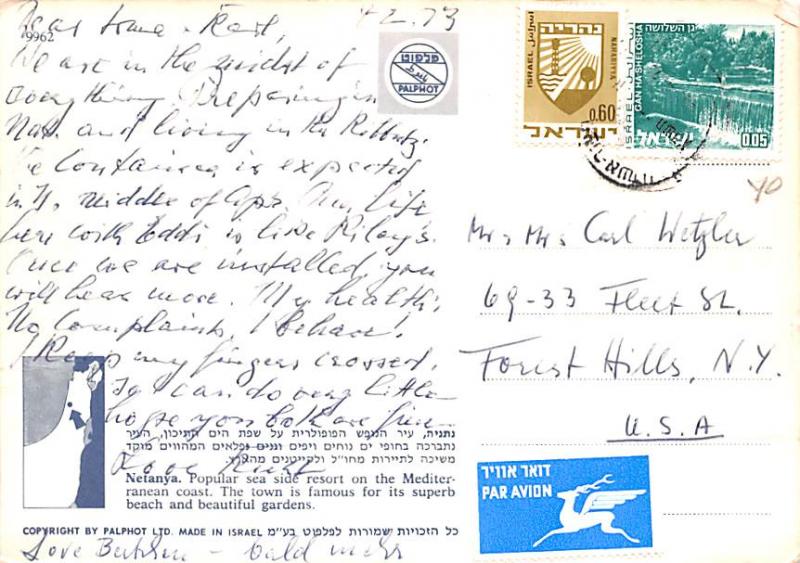 4.2.73
Dear Irma - Karl,
29962
We are in the midst of
everything. Preparing in
Nat. and living in the Kibbutz.
The Container is expected
in the middle of Apr. Our life
here with Eddi is like Riley's.
Once we are installed, you
will hear more. My health:
No Complaints, I behave!
I keep my fingers crossed.
So I can do very little
hope you both are fine
Love
Love
bald mehr
פלפוט
PALPHOT
נהריה
NAHARIYYA
ISRAEL
0.60
ישראל
גן השלושה
GAN HASHELOSHA
ISRAEL
ישראל
0.05
Mr. & Mrs. Carl Wetzler
69-33 Fleet St.
Forest Hills, N.Y.
U.S.A
נתניה, עיר הנופש הפופולרית על שפת הים התיכון, העיר
נתברכה בחופי ים נוחים ויפים וגנים נפלאים המהווים מוקד
משיכה לתיירות מחו״ל ולקייטנים מהארץ.
Netanya. Popular sea side resort on the Mediter-
ranean coast. The town is famous for its superb
beach and beautiful gardens.
COPYRIGHT BY PALPHOT LTD. MADE IN ISRAEL כל הזכויות שמורות לפלפוט בע״מ
דואר אוויר
PAR AVION